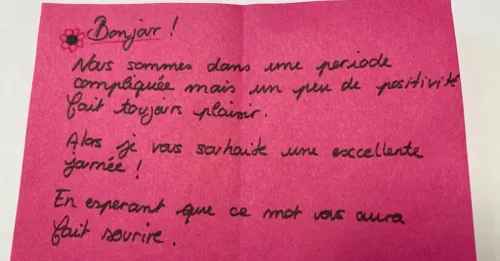 Bonjour !
Nous sommes dans une periode
compliquée mais un peu de positivité
fait toujours plaisir.
Alors je vous souhaite une excellente
journée !
En esperant que ce mot vous aura
fait sourire.